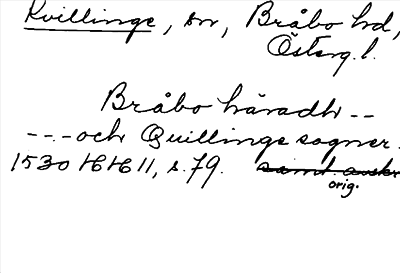 Kvillinge, sn, Bråbo hd,
Österg.l.
Bråbo häradh --
--.-och Quillinge sogner.
1530 HH 11, s. 79. samt. avskr
orig.